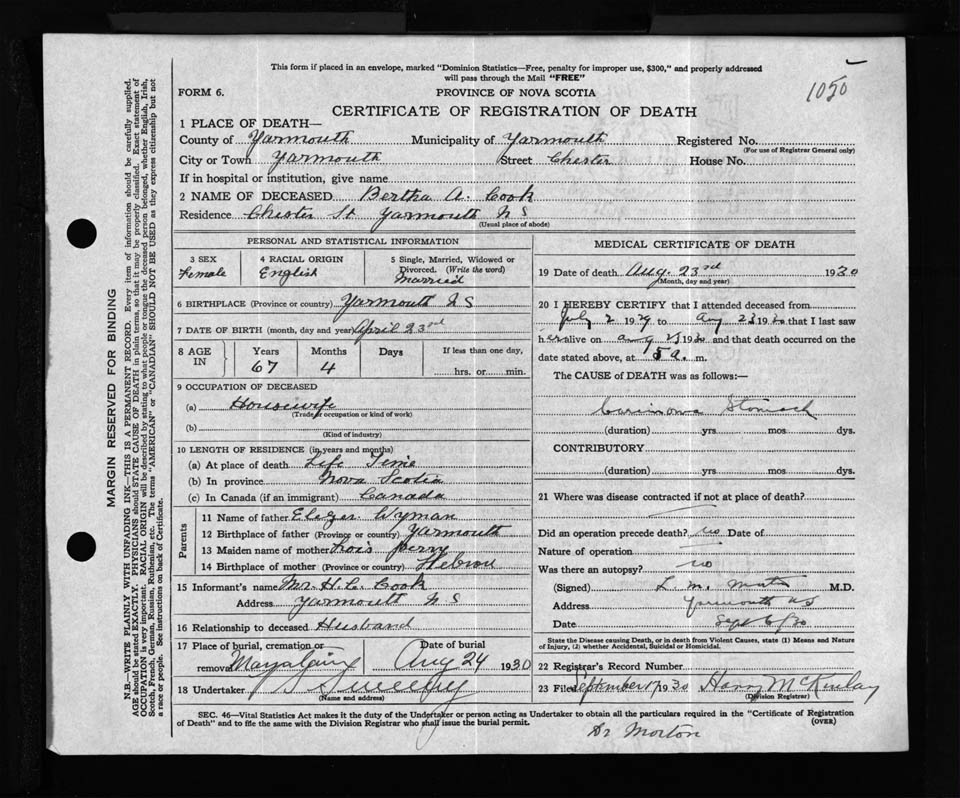 This form if placed in an envelope, marked "Dominion Statistics—Free, penalty for improper use, $300," and properly addressed
will pass through the Mail "FREE"
1050
FORM 6.
PROVINCE OF NOVA SCOTIA
CERTIFICATE OF REGISTRATION OF DEATH
1 PLACE OF DEATH—
County of Yarmouth Municipality of Yarmouth Registered No.
(For use of Registrar General only)
City or Town Yarmouth Street Chester House No.
If in hospital or institution, give name
2 NAME OF DECEASED Bertha A. Cook
Residence Chester St Yarmouth N S
(Usual place of abode)
PERSONAL AND STATISTICAL INFORMATION
3 SEX
Female
4 RACIAL ORIGIN
English
5 Single, Married, Widowed or
Divorced. (Write the word)
Married
6 BIRTHPLACE (Province or country) Yarmouth N S
7 DATE OF BIRTH (month, day and year) April 23rd
8 AGE IN
Years Months Days If less than one day,
67 4 hrs. or min.
9 OCCUPATION OF DECEASED
(a) Housewife
(Trade, occupation or kind of work)
(b)
(Kind of industry)
10 LENGTH OF RESIDENCE (in years and months)
(a) At place of death Life Time
(b) In province Nova Scotia
(c) In Canada (if an immigrant) Canada
Parents
11 Name of father Wyman
12 Birthplace of father (Province or country) Yarmouth
13 Maiden name of mother Lois Perry
14 Birthplace of mother (Province or country) Hebron
15 Informant's name Mr H. C. Cook
Address Yarmouth N S
16 Relationship to deceased Husband
17 Place of burial, cremation or
removal
Date of burial
Aug 24 1930
18 Undertaker Sweeny
(Name and address)
MEDICAL CERTIFICATE OF DEATH
19 Date of death Aug. 23rd 1930
(Month, day and year)
20 I HEREBY CERTIFY that I attended deceased from
July 2 1929 to Aug 23 1930 that I last saw
her alive on aug 23 1930 and that death occurred on the
date stated above, at a. m.
The CAUSE of DEATH was as follows:—
Stomach
(duration) yrs mos dys.
CONTRIBUTORY
(duration) yrs mos dys.
21 Where was disease contracted if not at place of death?
Did an operation precede death? no Date of
Nature of operation
Was there an autopsy? no
(Signed) L. M. M.D.
Address Yarmouth N S
Date Sept 6/30
State the Disease causing Death, or in death from Violent Causes, state (1) Means and Nature
of Injury, (2) whether Accidental, Suicidal or Homicidal.
22 Registrar's Record Number
23 Filed September 17 1930 Harry McKinlay
(Division Registrar)
SEC. 46—Vital Statistics Act makes it the duty of the Undertaker or person acting as Undertaker to obtain all the particulars required in the "Certificate of Registration
of Death" and to file the same with the Division Registrar who shall issue the burial permit.
(OVER)
Dr Morton
MARGIN RESERVED FOR BINDING
N.B.—WRITE PLAINLY WITH UNFADING INK—THIS IS A PERMANENT RECORD. Every item of information should be carefully supplied.
AGE should be stated EXACTLY. PHYSICIANS should STATE CAUSE OF DEATH in plain terms, so that it may be properly classified. Exact statement of
OCCUPATION is very important. RACIAL ORIGIN will be described by stating to what people or tongue the deceased person belonged, whether English, Irish,
Scotch, French, German, Russian, Ruthenian, etc. The terms "AMERICAN" or "CANADIAN" SHOULD NOT BE USED as they express citizenship but not
a race or people. See instructions on back of Certificate.